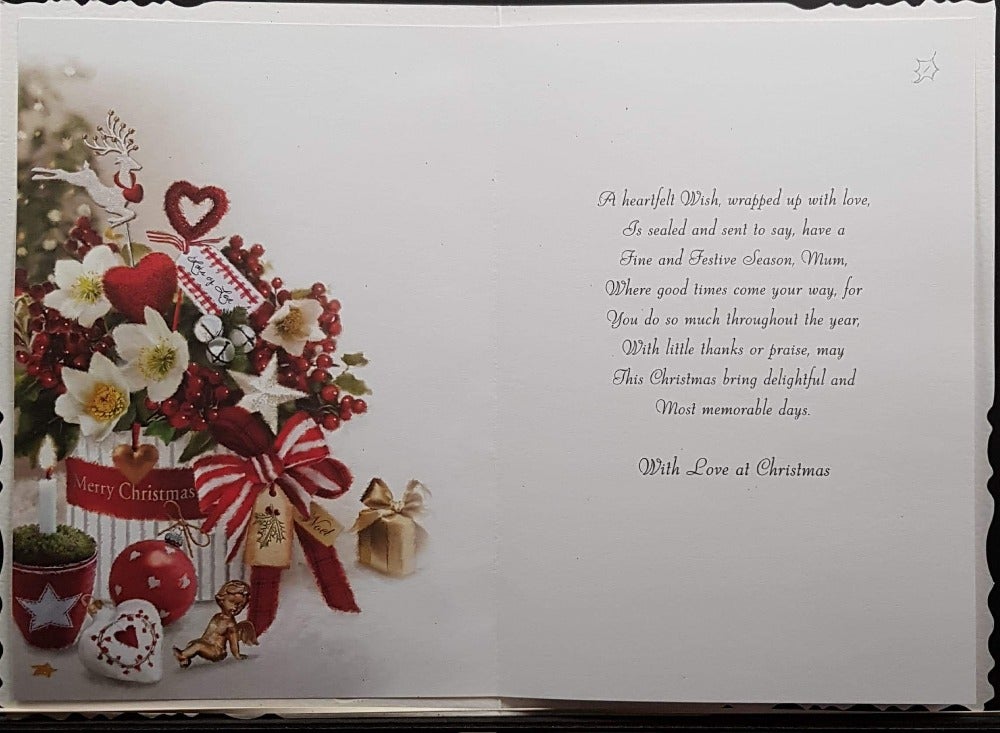 Lots of Love
Merry Christmas
Noel
A heartfelt Wish, wrapped up with love,
Is sealed and sent to say, have a
Fine and Festive Season, Mum,
Where good times come your way, for
You do so much throughout the year,
With little thanks or praise, may
This Christmas bring delightful and
Most memorable days.
With Love at Christmas